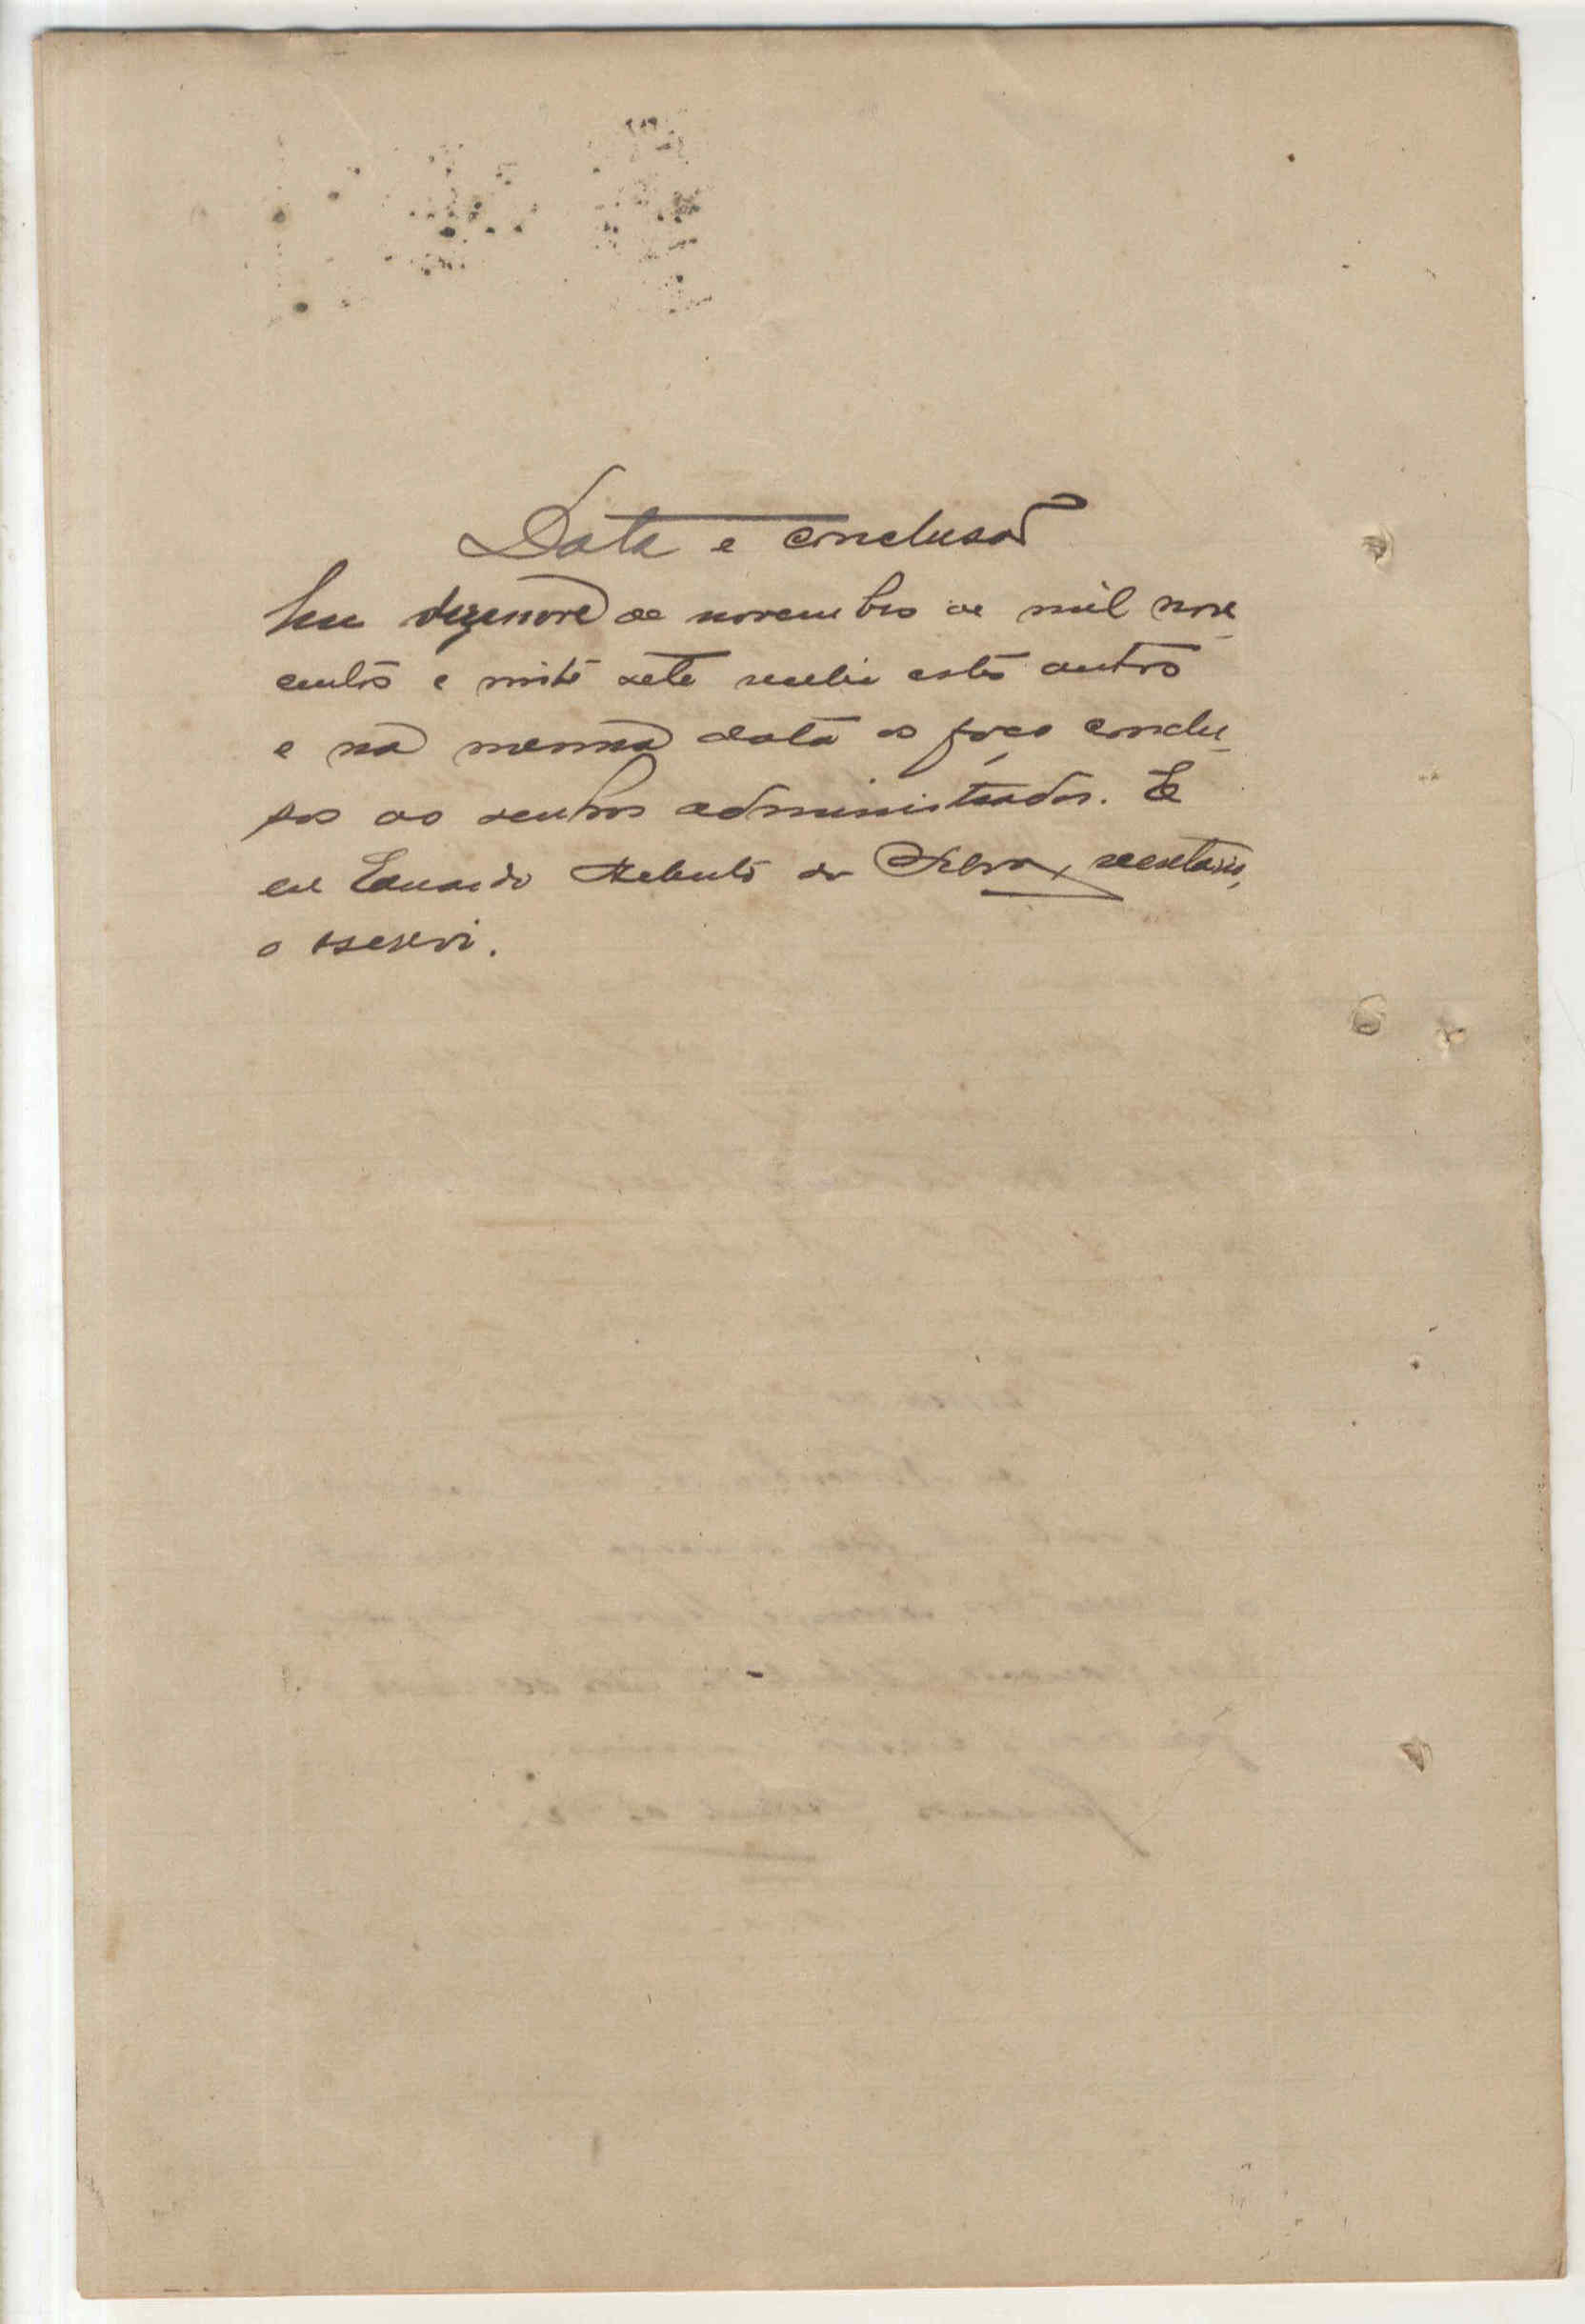 Data e conclusão
Em dezenove de novembro de mil nove
centos e vinte sete recebi estes autos
e na mesma data os faço conclu
sos ao senhor administrador. E
eu Eduardo da Silva, secretario,
o escrevi.